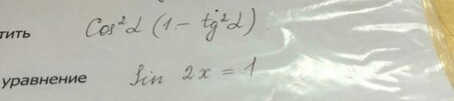 тить Cos²α (1 - tg²α)
уравнение Sin 2x = 1